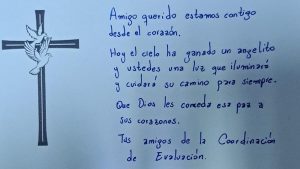 Amigo querido estamos contigo
desde el corazón.
Hoy el cielo ha ganado un angelito
y ustedes una luz que iluminará
y cuidará su camino para siempre.
Que Dios les conceda esa paz a
sus corazones.
Tus amigos de la Coordinación
de Evaluación.